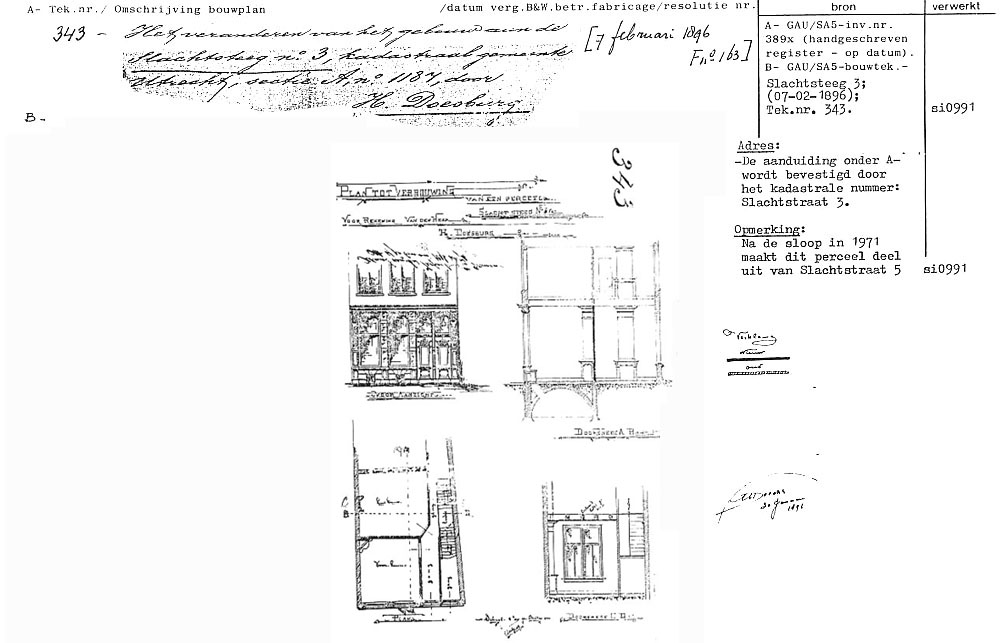 A- Tek.nr./ Omschrijving bouwplan /datum verg.B&W.betr.fabricage/resolutie nr. bron verwerkt
343 - Het veranderen van het gebouw aan de
Slachtsteeg nº 3, kadastraal gemeente
Utrecht, sectie A, nº 1187, door
H. Doesburg
[7 februari 1896
F nº 163]
B -
A- GAU/SA5-inv.nr.
389x (handgeschreven
register - op datum).
B- GAU/SA5-bouwtek.-
Slachtsteeg 3;
(07-02-1896);
Tek.nr. 343.
si0991
Adres:
-De aanduiding onder A-
wordt bevestigd door
het kadastrale nummer:
Slachtstraat 3.
Opmerking:
Na de sloop in 1971
maakt dit perceel deel
uit van Slachtstraat 5
si0991
343
PLAN TOT VERBOUWING
VAN EEN PERCEEL
SLACHTSTEEG Nº
VOOR REKENING VAN DEN HEER
H. DOESBURG
VOOR AANZICHT
DOORSNEDE A B
B
PLAN
DOORSNEDE C D
nieuw
oud